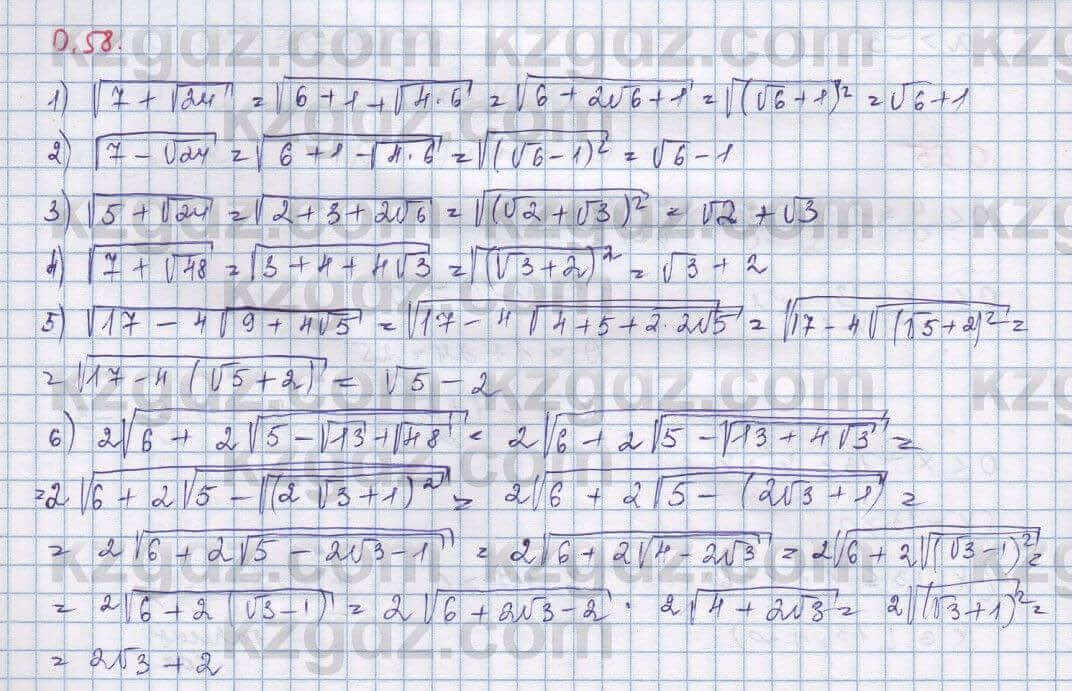 0.58.
1) √(7 + √24) = √(6 + 1 + √(4·6)) = √(6 + 2√6 + 1) = √((√6 + 1)²) = √6 + 1
2) √(7 - √24) = √(6 + 1 - √(4·6)) = √((√6 - 1)²) = √6 - 1
3) √(5 + √24) = √(2 + 3 + 2√6) = √((√2 + √3)²) = √2 + √3
4) √(7 + √48) = √(3 + 4 + 4√3) = √((√3 + 2)²) = √3 + 2
5) √(17 - 4√(9 + 4√5)) = √(17 - 4√(4 + 5 + 2·2√5)) = √(17 - 4√((√5 + 2)²)) =
= √(17 - 4(√5 + 2)) = √5 - 2
6) 2√(6 + 2√(5 - √(13 + √48))) = 2√(6 + 2√(5 - √(13 + 4√3))) =
= 2√(6 + 2√(5 - √((2√3 + 1)²))) = 2√(6 + 2√(5 - (2√3 + 1))) =
= 2√(6 + 2√(5 - 2√3 - 1)) = 2√(6 + 2√(4 - 2√3)) = 2√(6 + 2√((√3 - 1)²)) =
= 2√(6 + 2(√3 - 1)) = 2√(6 + 2√3 - 2) · 2√(4 + 2√3) = 2√((√3 + 1)²) =
= 2√3 + 2
kzgdz.com